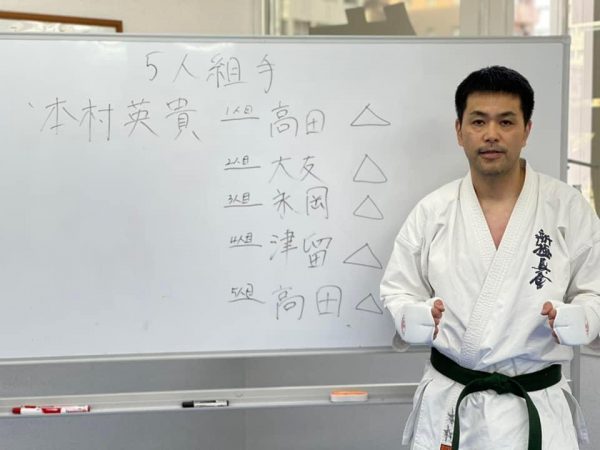 5人組手
本村英貴 1人目 高田 △
2人目 大友 △
3人目 米岡 △
4人目 津留 △
5人目 高田 △
新極真会